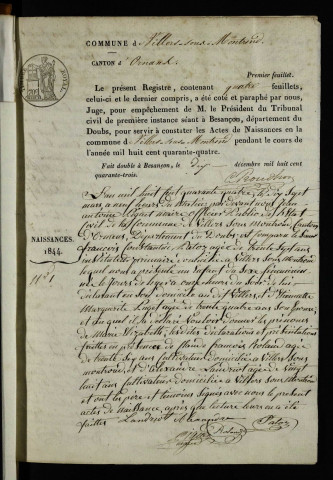 COMMUNE d Villers sous Montrond
CANTON d'Ornans
Premier feuillet.
Le présent Registre, contenant quatre feuillets,
celui-ci et le dernier compris, a été coté et paraphé par nous,
Juge, pour empêchement de M. le Président du Tribunal
civil de première instance séant à Besançon, département du
Doubs, pour servir à constater les Actes de Naissances en la
commune de Villers sous Montrond pendant le cours de
l'année mil huit cent quarante-quatre.
Fait double à Besançon, le dix décembre mil huit cent
quarante-trois.
NAISSANCES.
1844.
N° 1
L'an mil huit cent quarante quatre le dix sept
mars à neuf heures du matin par devant nous
antoine maire officier de l'état
civil de la commune de Villers sous Montrond canton
d'Ornans Département du Doubs est comparu
françois âgé de trente sept ans
instituteur primaire domicilié à Villers sous Montrond
lequel nous a présenté un enfant du sexe féminin
né le jour de hier à onze heures du soir de lui
déclarant en son domicile
Marguerite âgée de trente quatre ans son épouse
et auquel il a déclaré vouloir donner les prénoms
de Marie Elizabeth les dites déclarations et présentation
faites en présence de françois Roland âgé
de trente six ans cultivateur domicilié à Villers sous
montrond et d'alexandre Landriot âgé de vingt
huit ans cultivateur domicilié à Villers sous Montrond
et ont les père et témoins signés avec nous le present
actes de naissance, après que lecture leurs en a été
faittes
Landriot Alexandre
Roland